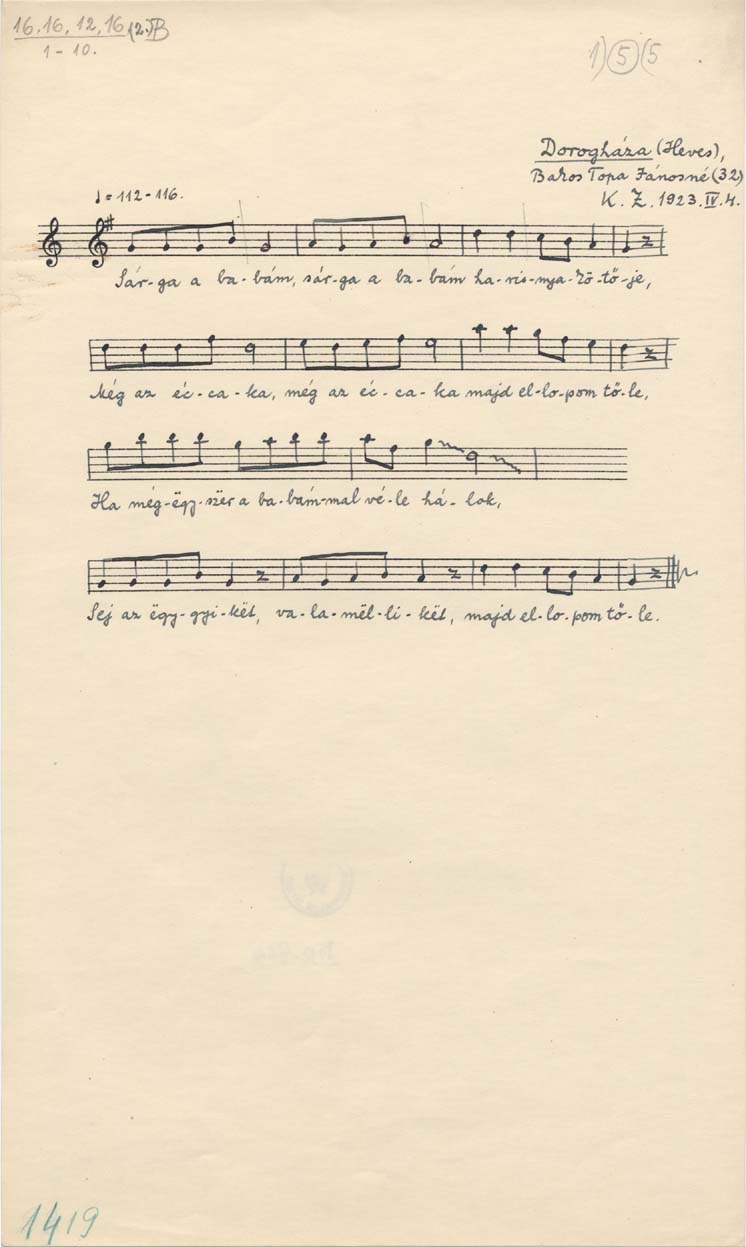 16.16, 12, 16 (2.)B
1 - 10.
1) 5 (5
Dorogháza (Heves),
Bakos Topa Jánosné (32)
K. Z. 1923. IV. 4.
♩ = 112 - 116.
Sár-ga a ba-bám, sár-ga a ba-bám ha-ris-nya-kö-tő-je,
Még az éc-ca-ka, még az éc-ca-ka majd el-lo-pom tő-le,
Ha még-ëgy-szër a ba-bám-mal vé-le há-lok,
Sej az ëgy-gyi-kët, va-la-mël-li-kët, majd el-lo-pom tő-le.
1419